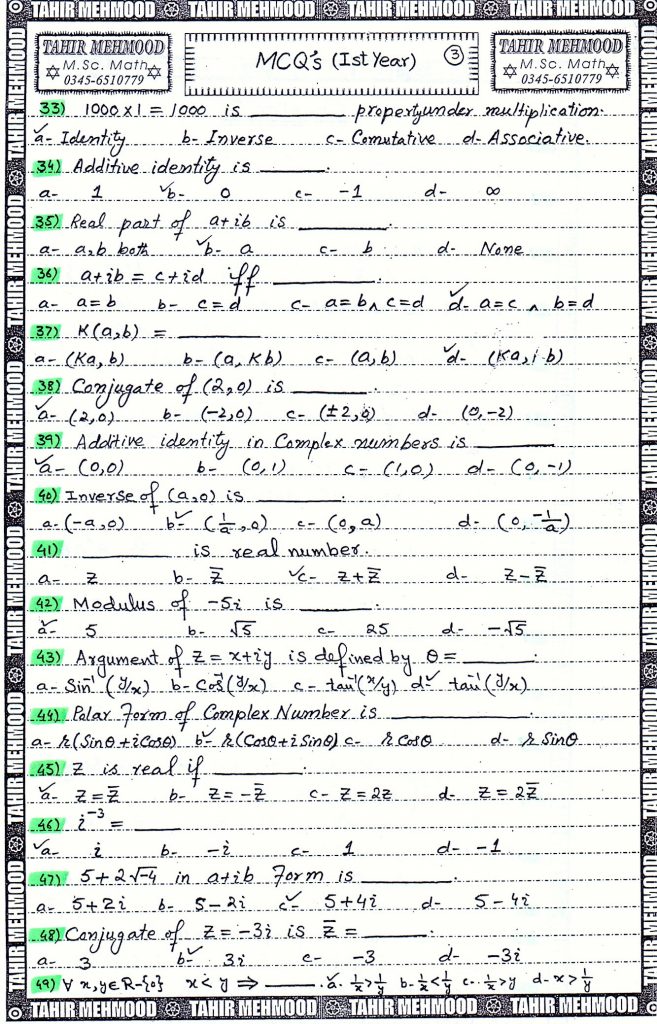 TAHIR MEHMOOD TAHIR MEHMOOD TAHIR MEHMOOD TAHIR MEHMOOD
TAHIR MEHMOOD
M.Sc. Math
0345-6510779
MCQ's (Ist Year) 3
TAHIR MEHMOOD
M.Sc. Math
0345-6510779
33) 1000 x 1 = 1000 is ______ property under multiplication.
✓a- Identity b- Inverse c- Comutative d- Associative.
34) Additive identity is ______.
a- 1 ✓b- 0 c- -1 d- ∞
35) Real part of a+ib is ______.
a- a,b both ✓b- a c- b d- None
36) a+ib = c+id iff ______.
a- a=b b- c=d c- a=b ∧ c=d ✓d- a=c ∧ b=d
37) K(a,b) = ______
a- (Ka, b) b- (a, Kb) c- (a,b) ✓d- (Ka, b)
38) Conjugate of (2,0) is ______.
✓a- (2,0) b- (-2,0) c- (±2,0) d- (0,-2)
39) Additive identity in Complex numbers is ______
✓a- (0,0) b- (0,1) c- (1,0) d- (0,-1)
40) Inverse of (a,0) is ______.
a- (-a,0) b-✓ (1/a,0) c- (0,a) d- (0,-1/a)
41) ______ is real number.
a- z b- z̅ ✓c- z+z̅ d- z-z̅
42) Modulus of -5i is ______.
✓a- 5 b- √5 c- 25 d- -√5
43) Argument of z = x+iy is defined by θ= ______.
a- Sin⁻¹(y/x) b- Cos⁻¹(y/x) c- tan⁻¹(x/y) d-✓ tan⁻¹(y/x)
44) Polar Form of Complex Number is ______
a- r(Sinθ+iCosθ) b-✓ r(Cosθ+iSinθ) c- r Cosθ d- r Sinθ
45) z is real if ______.
✓a- z=z̅ b- z=-z̅ c- z=2z d- z=2z̅
46) i⁻³ = ______
✓a- i b- -i c- 1 d- -1
47) 5+2√-4 in a+ib Form is ______.
a- 5+2i b- 5-2i c-✓ 5+4i d- 5-4i
48) Conjugate of z=-3i is z̅ = ______.
a- 3 b-✓ 3i c- -3 d- -3i
49) ∀ x,y∈R-{0} x<y ⇒ ______. ✓a- 1/x>1/y b- 1/x<1/y c- 1/x>y d- x>1/y
TAHIR MEHMOOD TAHIR MEHMOOD TAHIR MEHMOOD TAHIR MEHMOOD